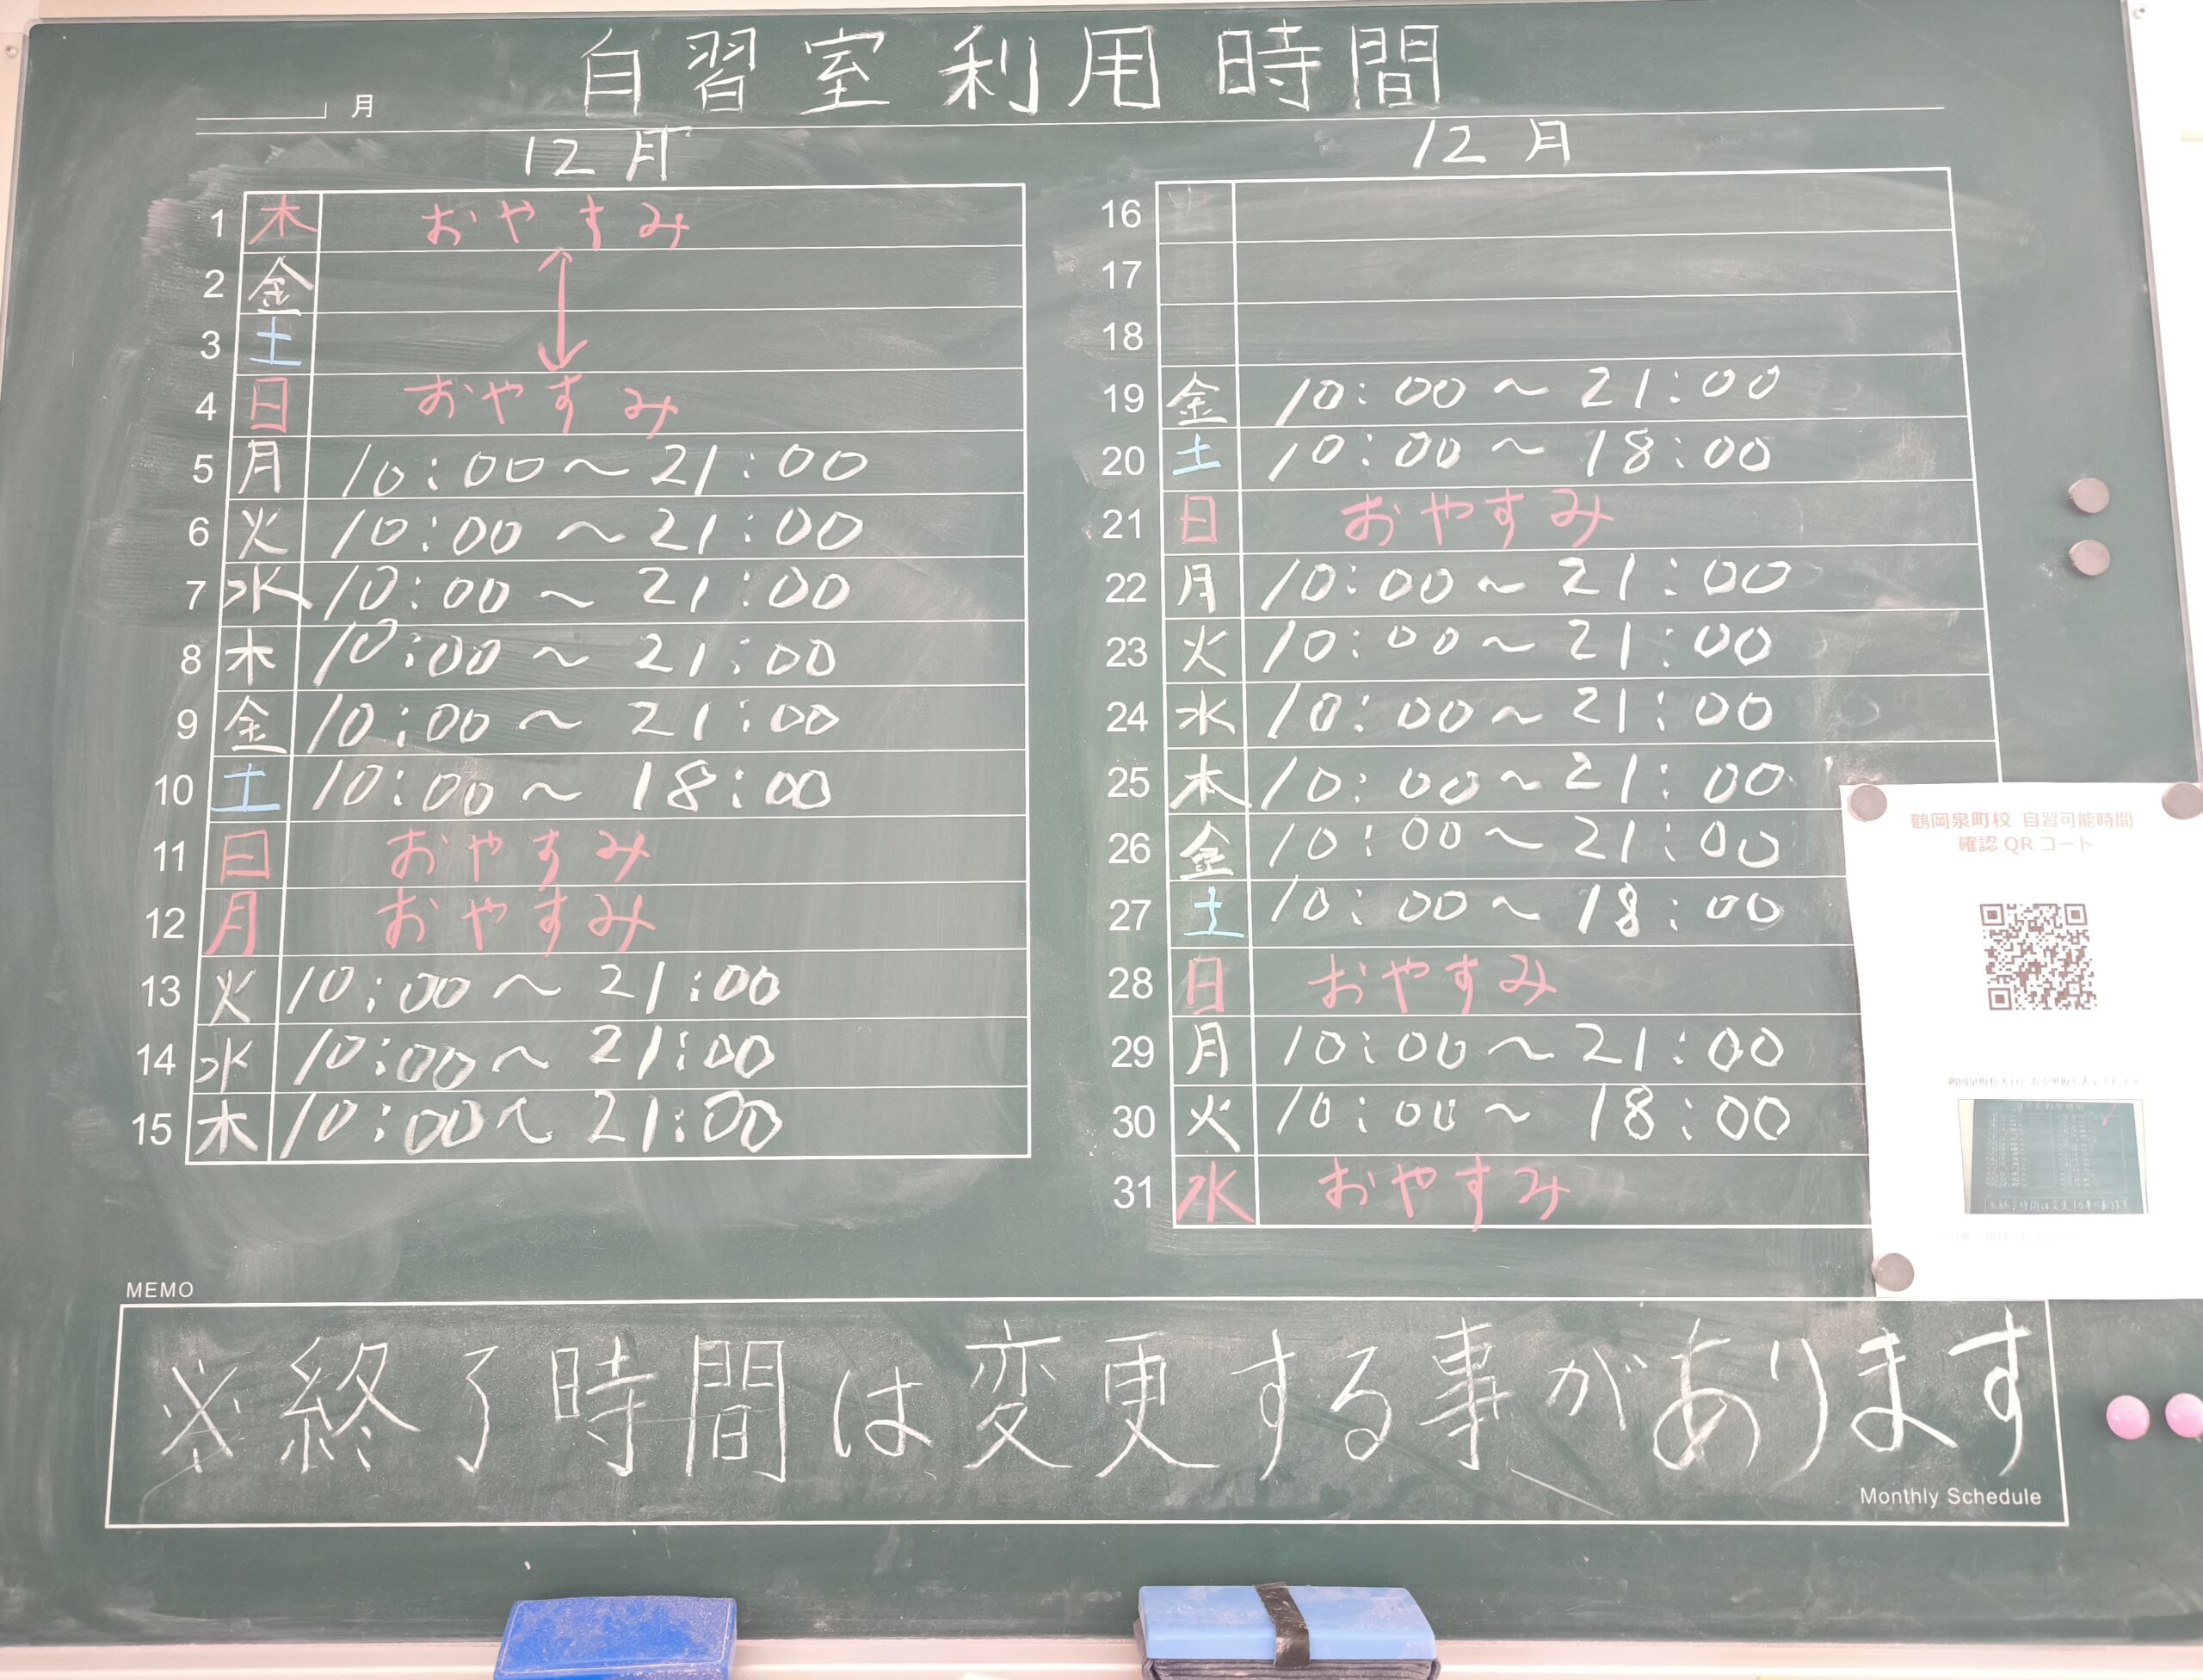 自習室利用時間
月
12月
1 木 おやすみ
2 金
3 土
4 日 おやすみ
5 月 10:00～21:00
6 火 10:00～21:00
7 水 10:00～21:00
8 木 10:00～21:00
9 金 10:00～21:00
10 土 10:00～18:00
11 日 おやすみ
12 月 おやすみ
13 火 10:00～21:00
14 水 10:00～21:00
15 木 10:00～21:00
12月
16
17
18
19 金 10:00～21:00
20 土 10:00～18:00
21 日 おやすみ
22 月 10:00～21:00
23 火 10:00～21:00
24 水 10:00～21:00
25 木 10:00～21:00
26 金 10:00～21:00
27 土 10:00～18:00
28 日 おやすみ
29 月 10:00～21:00
30 火 10:00～18:00
31 水 おやすみ
鶴岡泉町校 自習可能時間
確認QRコート
MEMO
※終了時間は変更する事があります
Monthly Schedule